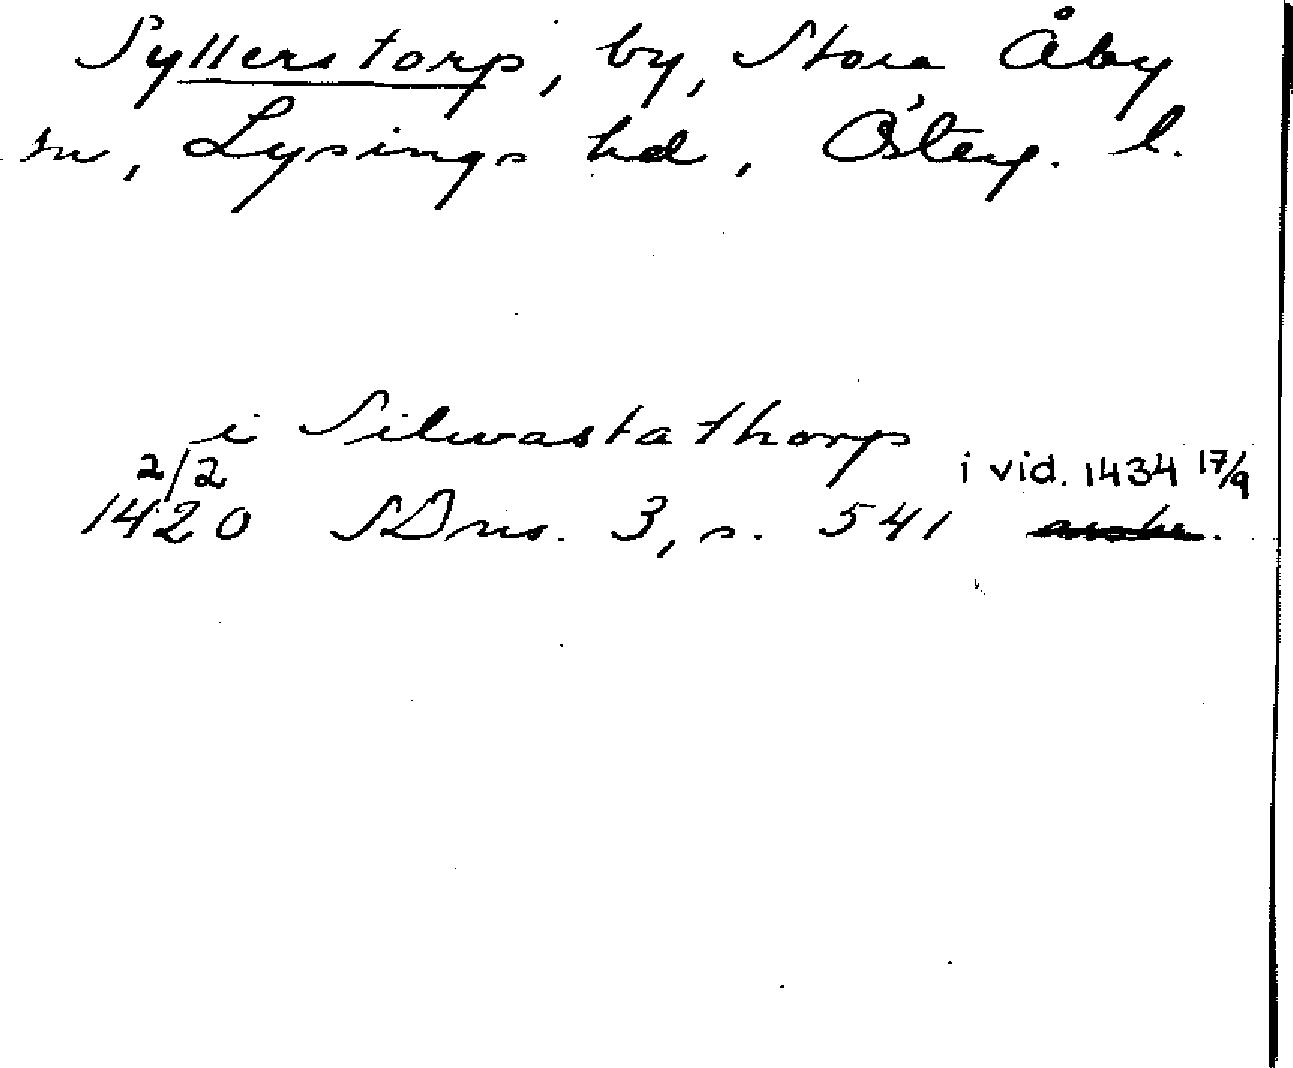 Syllerstorp, by, Stora Åby
sn, Lysings hd, Österg. l.
i Silwastathorp
2/2 i vid. 1434 17/9
1420 SDns. 3, s. 541